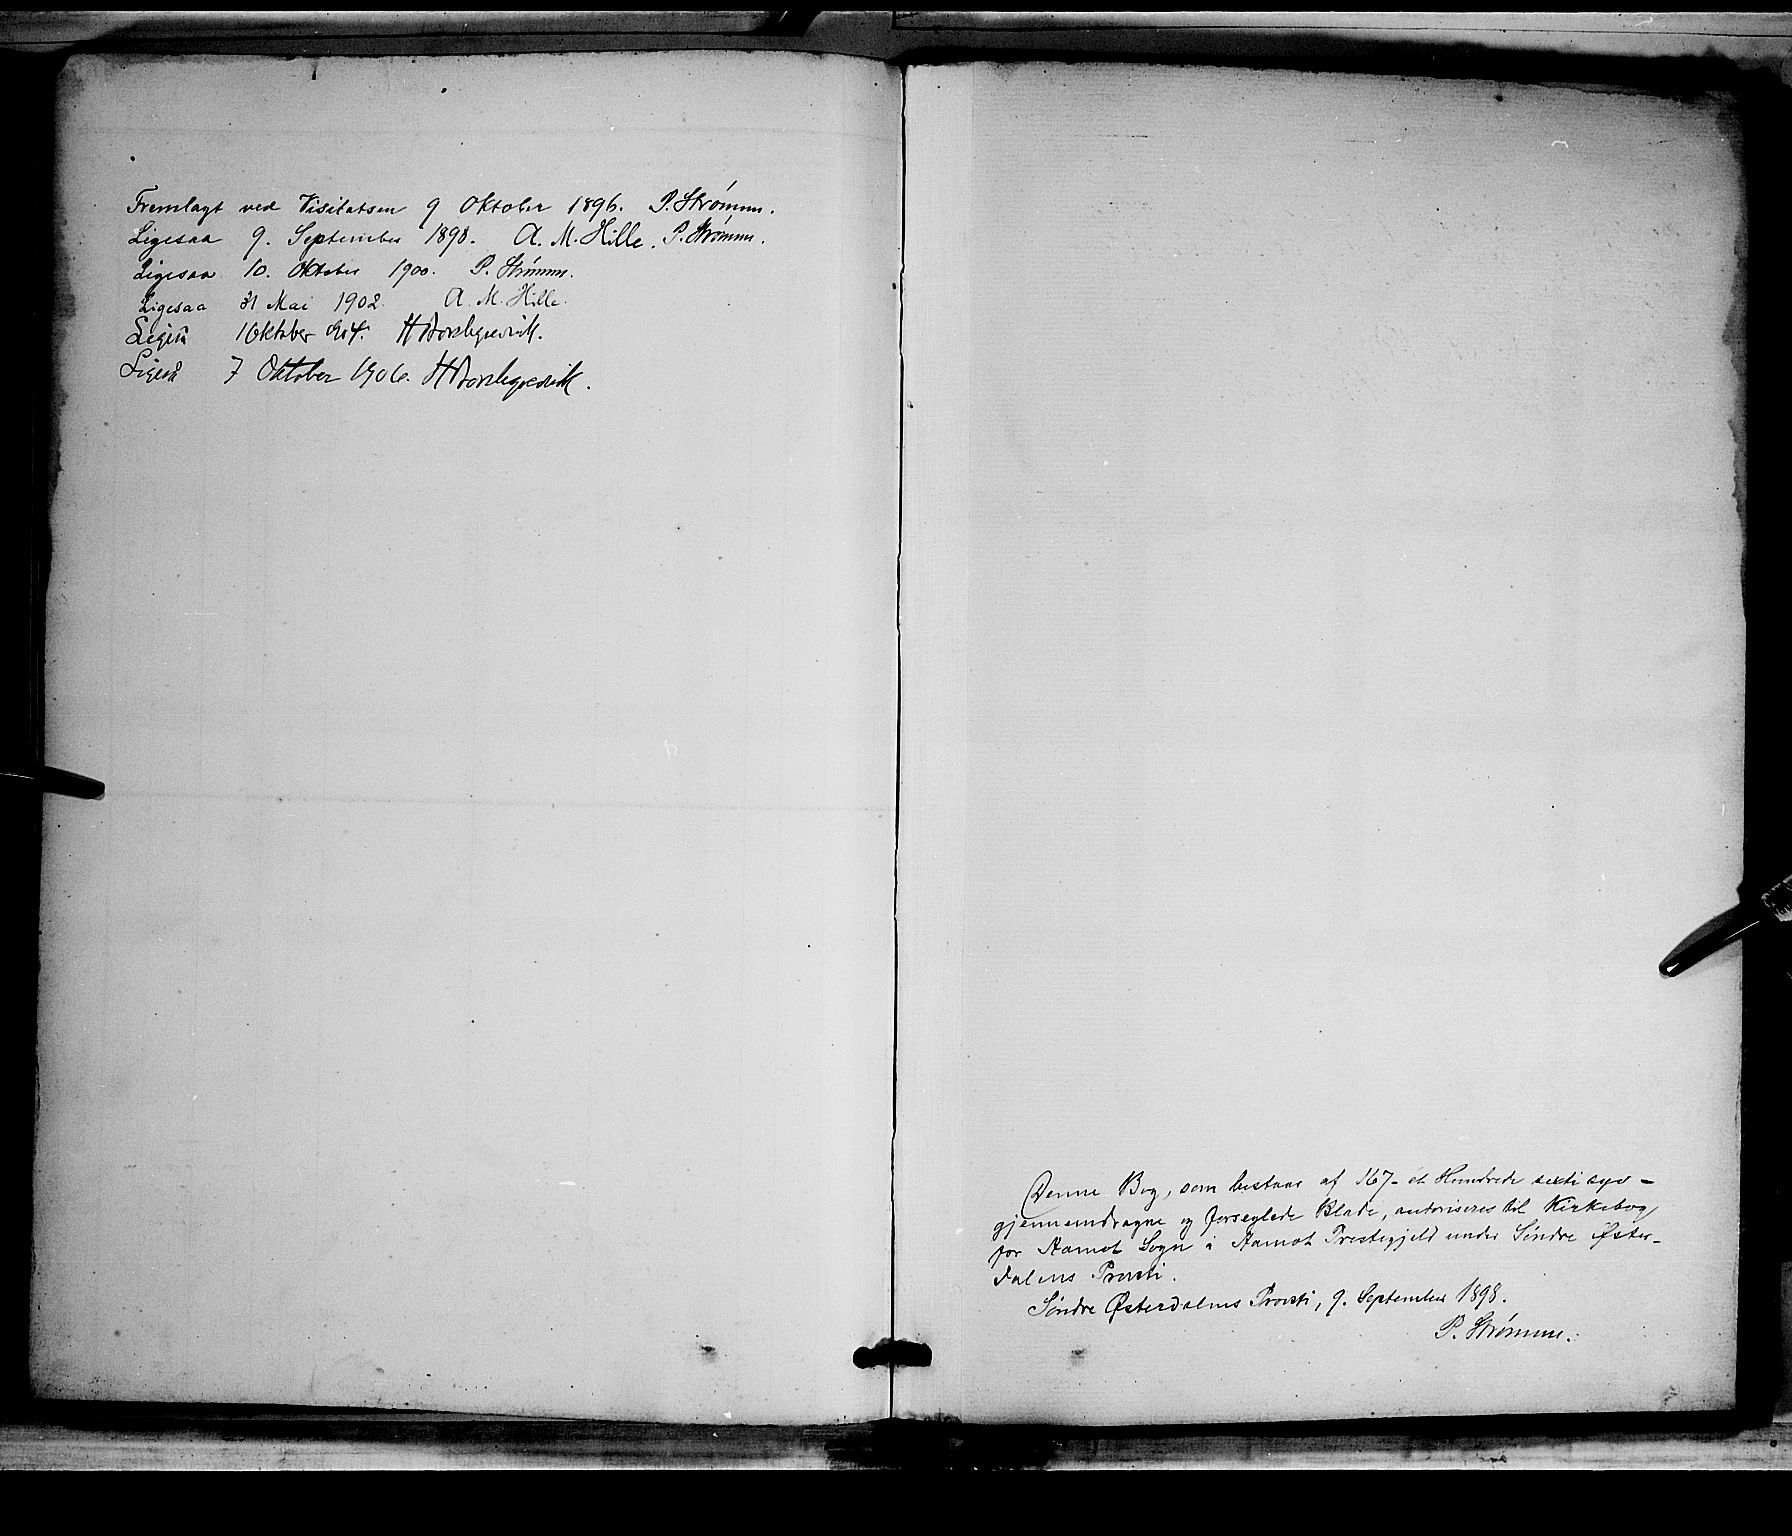 Fremlagt ved Visitatsen 9 Oktober 1896. P. Strømme.
Ligesaa 9. September 1898. A. M. Hille. P. Strømme.
Ligesaa 10. Oktober 1900. P. Strømme.
Ligesaa 31 Mai 1902. A. M. Hille.
Ligeså 1 Oktober 1904. H
Ligeså 7 Oktober 1906. H
Denne Bog, som bestaar af 167 - et Hundrede sexti syv -
gjennemdragne og forseglede Blade, autoriseres til Kirkebog
for Aamot Sogn i Aamot Prestegjeld under Søndre Øster-
dalens Provsti.
Søndre Østerdalens Provsti, 9. September 1898.
P. Strømme.